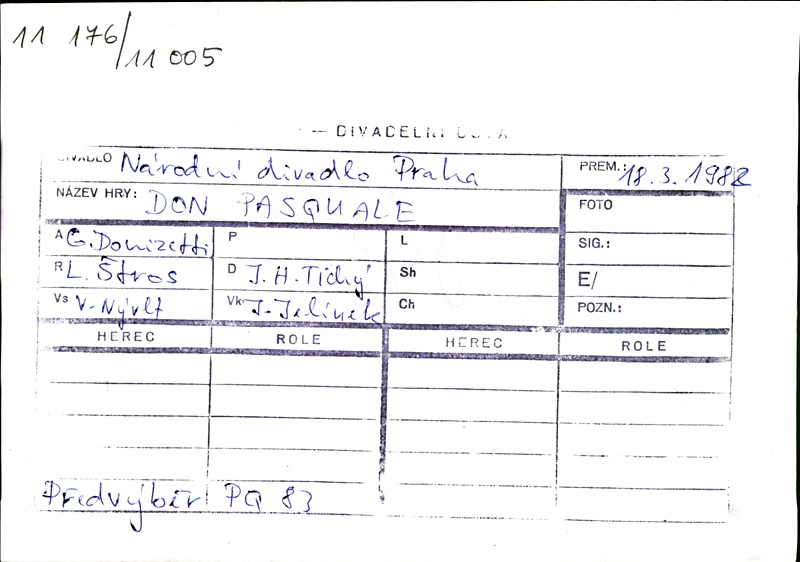 11 176/11 005
DIVADELNÍ
DIVADLO Národní divadlo Praha PREM.: 18.3.1982
NÁZEV HRY: DON PASQUALE FOTO
A G. Donizetti P L SIG.:
R L. Štros D J. H. Tichý Sh E/
Vs V. Nývlt Vk J. Jelínek Ch POZN.:
HEREC ROLE HEREC ROLE
Předvýběr PQ 83